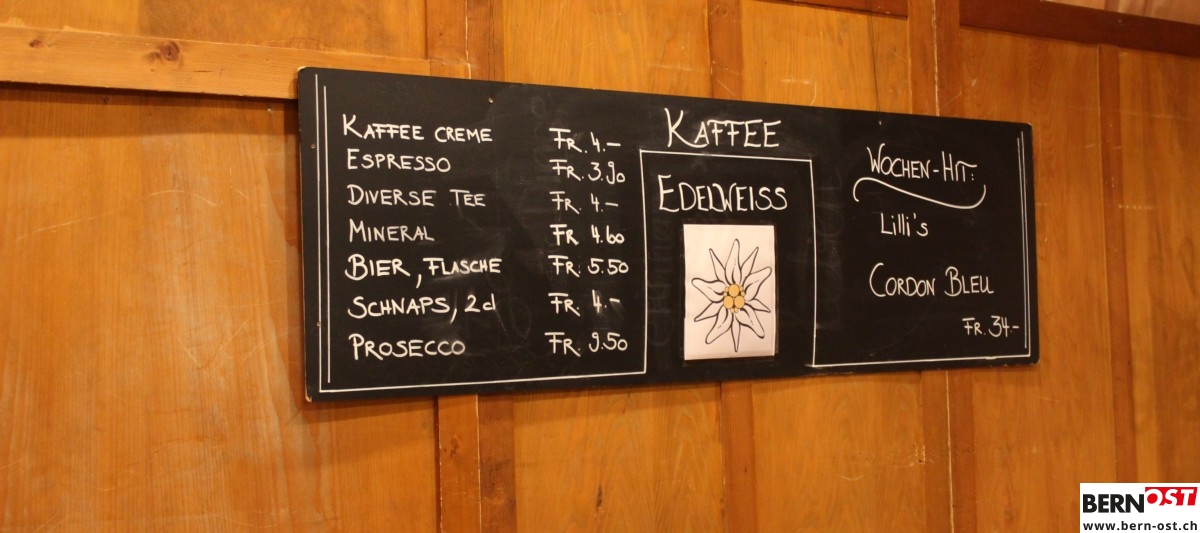 KAFFEE CREME FR. 4.-
ESPRESSO FR. 3.90
DIVERSE TEE FR. 4.-
MINERAL FR 4.60
BIER, FLASCHE FR. 5.50
SCHNAPS, 2cl FR. 4.-
PROSECCO FR. 9.50
KAFFEE
EDELWEISS
WOCHEN-HIT:
Lilli's
CORDON BLEU
FR. 34.-
BERNOST
www.bern-ost.ch